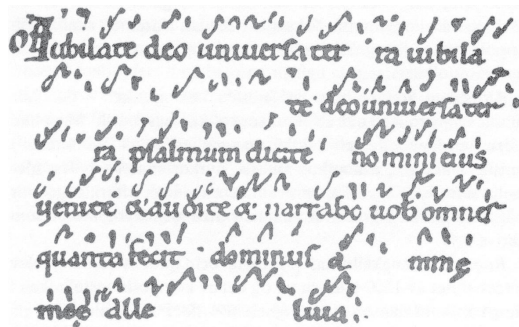 Iubilate deo universa ter ra iubila
te deo universa ter
ra psalmum dicite nomini eius
venite & audite & narrabo vob omnes
quanta fecit dominus a nime
meae alle luia.